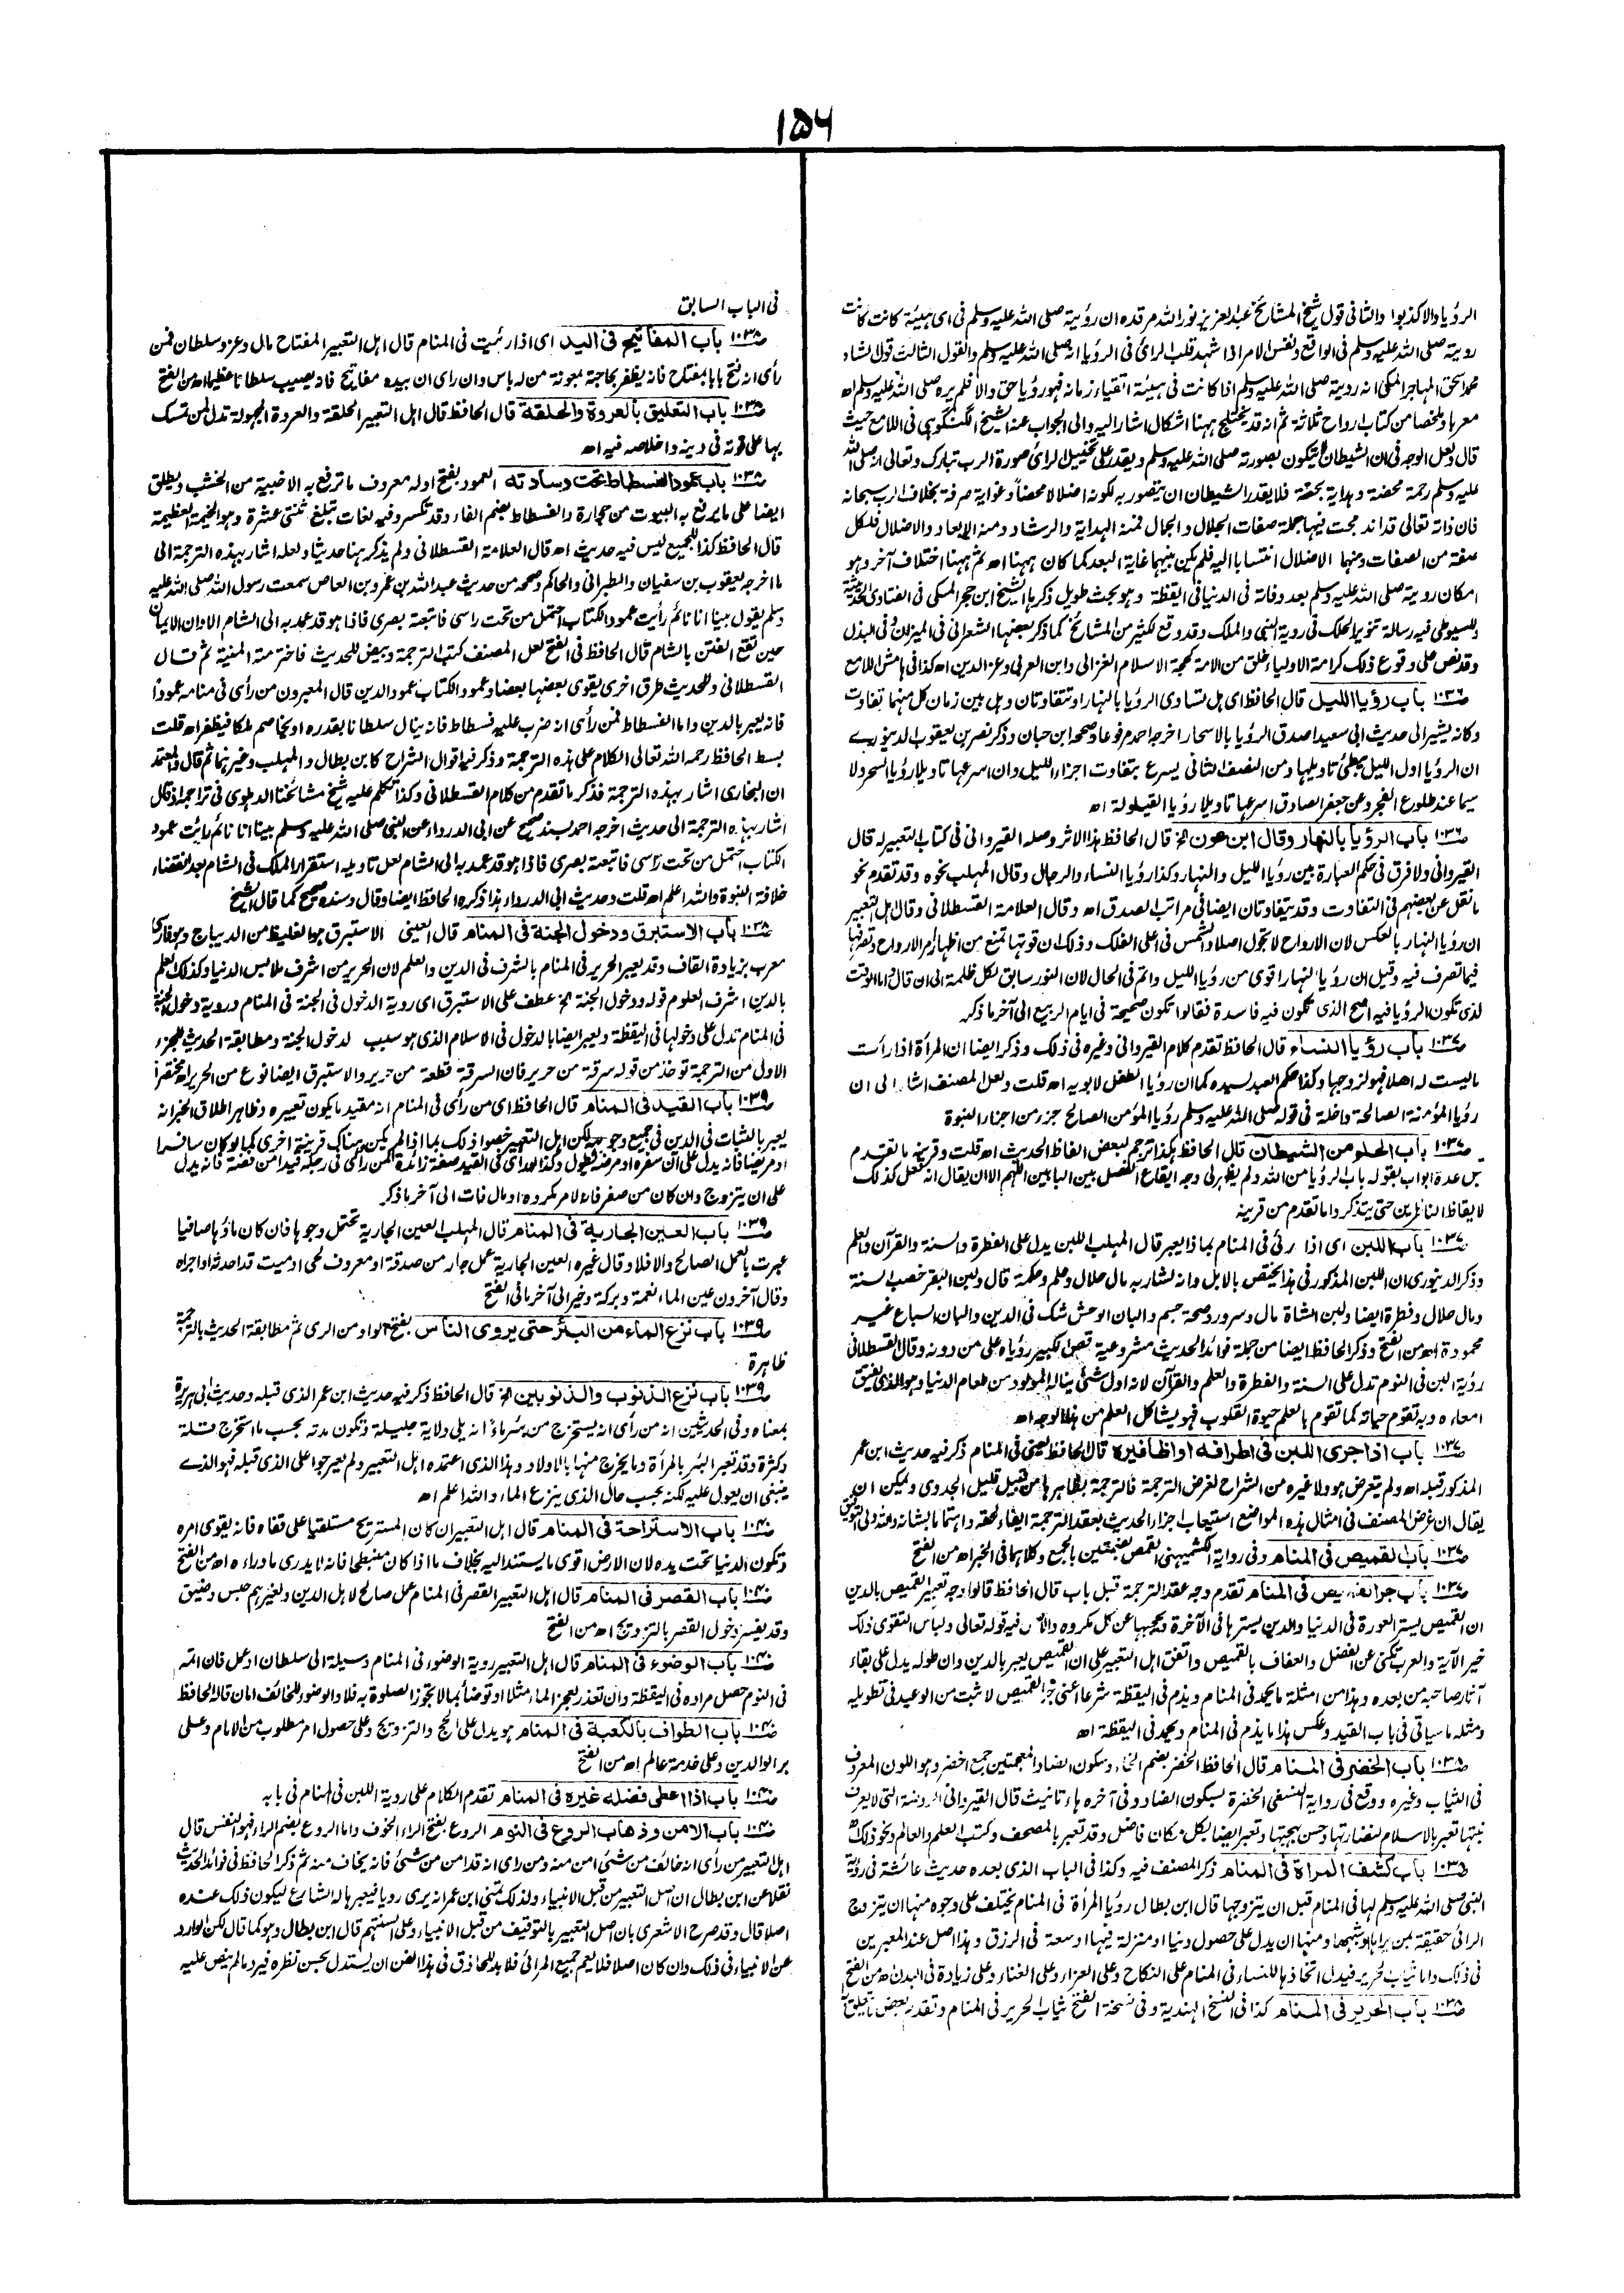 ١٥٦
الرؤيا والا كذبوا والثانى قول شيخ المشائخ عبد العزيز نور الله مرقده ان رؤيته صلى الله عليه وسلم فى اى هيئة كانت كانت
رويته صلى الله عليه وسلم فى الواقع ونفس الامر اذا شهد قلب الرائى فى الرؤيا انه صلى الله عليه وسلم والقول الثالث قول الشاه
محمد اسحق المهاجر المكى انه رويته صلى الله عليه وسلم اذا كانت فى هيئة اتقياء زمانه فهو رؤيا حق والا فلم يره صلى الله عليه وسلم اه
معربا وملخصا من كتاب ارواح ثلاثة ثم انه قد يختلج ههنا اشكال اشار اليه والى الجواب عنه الشيخ الگنگوهى فى اللامع حيث
قال ولعل الوجه فى ان الشيطان لا يتكون بصورته صلى الله عليه وسلم ويقدر على تخييل الرائى صورة الرب تبارك وتعالى انه صلى الله
عليه وسلم رحمة محضة وهداية بحتة فلا يقدر الشيطان ان يتصور به لكونه اضلالا محضا وغواية صرفة بخلاف الرب سبحانه
فان ذاته تعالى قد اندمجت فيها جملة صفات الجلال والجمال فمنه الهداية والرشاد ومنه الابعاد والاضلال فلكل
صفة من الصفات ومنها الاضلال انتسابا اليه فلم يكن بينهما غاية البعد كما كان ههنا اه ثم ههنا اختلاف آخر وهو
امكان رويته صلى الله عليه وسلم بعد وفاته فى الدنيا فى اليقظة وهو بحث طويل ذكرها الشيخ ابن حجر المكى فى الفتاوى الحديثية
وللسيوطى فيه رسالة تنوير الحلك فى روية النبى والملك وقد وقع لكثير من المشائخ كما ذكر بعضها الشعرانى فى الميزان وفى البذل
وقد نص على وقوع ذلك كرامة الاولياء خلق من الامة كحجة الاسلام الغزالى وابن العربى وعز الدين اه كذا فى هامش اللامع
ص١٠٣٦ باب رؤيا الليل قال الحافظ اى هل تساوى الرؤيا بالنهار او تتفاوتان وهل بين زمان كل منهما تفاوت
وكانه يشير الى حديث ابى سعيد اصدق الرؤيا بالاسحار اخرجه احمد مرفوعا وصححه ابن حبان وذكر نصر بن يعقوب الدينورى
ان الرؤيا اول الليل يبطئ تاويلها ومن النصف الثانى يسرع بتفاوت اجزاء الليل وان اسرعها تاويلا رؤيا السحر ولا
سيما عند طلوع الفجر وعن جعفر الصادق اسرعها تاويلا رؤيا القيلولة اه
ص١٠٣٦ باب الرؤيا بالنهار وقال ابن عون الخ قال الحافظ هذا الاثر وصله القيروانى فى كتاب التعبير له قال
القيروانى ولا فرق فى حكم العبارة بين رؤيا الليل والنهار وكذا رؤيا النساء والرجال وقال المهلب نحوه وقد تقدم نحو
ما نقل عن بعضهم فى التفاوت وقد يتفاوتان ايضا فى مراتب الصدق اه وقال العلامة القسطلانى وقال اهل التعبير
ان رؤيا النهار بالعكس لان الارواح لا تجول اصلا والشمس فى اعلى الفلك وذلك ان قوتها تمنع من اظهار امر الارواح وتصرفها
فيما تصرف فيه وقيل ان رؤيا النهار اقوى من رؤيا الليل واتم فى الحال لان النور سابق لكل ظلمة الى ان قال واما الوقت
لذى تكون الرؤيا فيه اصح الذى تكون فيه فاسدة فقالوا تكون صحيحة فى ايام الربيع الى آخر ما ذكر
ص١٠٣٧ باب رؤيا النساء قال الحافظ تقدم كلام القيروانى وغيره فى ذلك وذكر ايضا ان المرأة اذا رأت
ماليست له اهلا فهو لزوجها وكذا حكم العبد لسيده كما ان رؤيا الطفل لابويه اه قلت ولعل المصنف اشار الى ان
رؤيا المؤمنة الصالحة داخلة فى قوله صلى الله عليه وسلم رؤيا المؤمن الصالح جزء من اجزاء النبوة
ص١٠٣٧ باب الحلم من الشيطان قال الحافظ هكذا ترجم لبعض الفاظ الحديث اه قلت وقرينه ما تقدم
بل عدة ابواب بقوله باب الرؤيا من الله ولم يظهر لى وجه ايقاع الفصل بين البابين اللهم الا ان يقال انه فعل كذلك
لايقاظ الناظرين حتى يتذكر واما تقدم من قرينه
ص١٠٣٧ باب اللبن اى اذا رئى فى المنام بماذا يعبر قال المهلب اللبن يدل على الفطرة والسنة والقرآن والعلم
وذكر الدينورى ان اللبن المذكور فى هذا يختص بالابل وانه لشاربه مال حلال وعلم وحكمة قال ولبن البقر خصب السنة
ومال حلال وفطرة ايضا ولبن الشاة مال وسرور وصحة جسم والبان الوحش شك فى الدين والبان السباع غير
محمودة اه من الفتح وذكر الحافظ ايضا من جملة فوائد الحديث مشروعية قص الكبير رؤياه على من دونه وقال القسطلانى
رؤية اللبن فى النوم تدل على السنة والفطرة والعلم والقرآن لانه اول شئ يناله المولود من طعام الدنيا وهو الذى يفتق
امعاءه وبه تقوم حياته كما تقوم بالعلم حيوة القلوب فهو يشاكل العلم من هذا الوجه اه
ص١٠٣٧ باب اذا جرى اللبن فى اطرافه او اظافيره قال الحافظ يعنى فى المنام ذكر فيه حديث ابن عمر
المذكور قبله اه ولم يتعرض هو ولا غيره من الشراح لغرض الترجمة فالترجمة بظاهرها من قبيل قليل الجدوى ويمكن ان
يقال ان غرض المصنف فى امثال هذه المواضع استيعاب اجزاء الحديث بعقد الترجمة ايفاء لحقه واهتماما بشانه والله ولى التوفيق
ص١٠٣٧ باب القميص فى المنام وفى رواية الكشميهنى القمص بضمتين بالجمع وكلاهما فى الخبر اه من الفتح
ص١٠٣٧ باب جر القميص فى المنام تقدم وجه عقد الترجمة قبل باب قال الحافظ قالوا وجه تعبير القميص بالدين
ان القميص يستر العورة فى الدنيا والدين يسترها فى الآخرة ويحجبها عن كل مكروه والاصل فيه قوله تعالى ولباس التقوى ذلك
خير الآية والعرب تكنى عن الفضل والعفاف بالقميص واتفق اهل التعبير على ان القميص يعبر بالدين وان طوله يدل على بقاء
آثار صاحبه من بعده وهذا من امثلة ما يحمد فى المنام ويذم فى اليقظة شرعا اعنى جر القميص لما ثبت من الوعيد فى تطويله
ومثله ما سياتى فى باب القيد وعكس هذا ما يذم فى المنام ويحمد فى اليقظة اه
ص١٠٣٨ باب الخضر فى المنام قال الحافظ الخضر بضم الخاء وسكون الضاد المعجمتين جمع اخضر وهو اللون المعروف
فى الثياب وغيره ووقع فى رواية النسفى الخضرة بسكون الضاد وفى آخره هاء تانيث قال القيروانى الروضة التى لا يعرف
نبتها تعبر بالاسلام لنضارتها وحسن بهجتها وتعبر ايضا بكل مكان فاضل وقد تعبر بالمصحف وكتب العلم والعالم ونحو ذلك اه
ص١٠٣٨ باب كشف المرأة فى المنام ذكر المصنف فيه وكذا فى الباب الذى بعده حديث عائشة فى رؤية
النبى صلى الله عليه وسلم لها فى المنام قبل ان يتزوجها قال ابن بطال رؤيا المرأة فى المنام يختلف على وجوه منها ان يتزوج
الرائى حقيقة بمن يراها او شبهها ومنها ان يدل على حصول دنيا او منزلة فيها او سعة فى الرزق وهذا اصل عند المعبرين
فى ذلك واما ثياب الحرير فيدل اتخاذها للنساء فى المنام على النكاح وعلى العزاء وعلى الغناء وعلى زيادة فى البدن اه من الفتح
ص١٠٣٨ باب الحرير فى المنام كذا فى النسخ الهندية وفى نسخة الفتح ثياب الحرير فى المنام وتقدم بعض ما يتعلق به
فى الباب السابق
ص١٠٣٨ باب المفاتيح فى اليد اى اذا رئيت فى المنام قال اهل التعبير المفتاح مال وعز وسلطان فمن
رأى انه فتح بابا بمفتاح فانه يظفر بحاجة بمعونة من له باس وان راى ان بيده مفاتيح فانه يصيب سلطانا عظيما اه من الفتح
ص١٠٣٨ باب التعليق بالعروة والحلقة قال الحافظ قال اهل التعبير الحلقة والعروة المجهولة تدل لمن تمسك
بها على قوته فى دينه واخلاصه فيه اه
ص١٠٣٨ باب عمود الفسطاط تحت وسادته العمود بفتح اوله معروف ما ترفع به الاخبية من الخشب ويطلق
ايضا على ما يرفع به البيوت من حجارة والفسطاط بضم الفاء وقد تكسر وفيه لغات تبلغ ثنتى عشرة وهو الخيمة العظيمة
قال الحافظ كذا للجميع ليس فيه حديث اه قال العلامة القسطلانى ولم يذكر هنا حديثا ولعله اشار بهذه الترجمة الى
ما اخرجه يعقوب بن سفيان والطبرانى والحاكم وصححه من حديث عبد الله بن عمرو بن العاص سمعت رسول الله صلى الله عليه
وسلم يقول بينا انا نائم رأيت عمود الكتاب احتمل من تحت راسى فاتبعته بصرى فاذا هو قد عمد به الى الشام الا وان الايمان
حين تقع الفتن بالشام قال الحافظ فى الفتح لعل المصنف كتب الترجمة وبيض للحديث فاخترمته المنية ثم قال
القسطلانى وللحديث طرق اخرى يقوى بعضها بعضا وعمود الكتاب عمود الدين قال المعبرون من رأى فى منامه عمودا
فانه يعبر بالدين واما الفسطاط فمن رأى انه ضرب عليه فسطاط فانه ينال سلطانا بقدره او يخاصم ملكا فيظفر اه قلت
بسط الحافظ رحمه الله تعالى الكلام على هذه الترجمة وذكر فيه اقوال الشراح كابن بطال والمهلب وغيرهما ثم قال والمعتمد
ان البخارى اشار بهذه الترجمة فذكر ما تقدم من كلام القسطلانى وكذا تكلم عليه شيخ مشائخنا الدهلوى فى تراجمه اذ قال
اشار بهذه الترجمة الى حديث اخرجه احمد بسند صحيح عن ابى الدرداء عن النبى صلى الله عليه وسلم بينا انا نائم رأيت عمود
الكتاب احتمل من تحت راسى فاتبعته بصرى فاذا هو قد عمد به الى الشام لعل تاويله استقرار الملك فى الشام بعد انقضاء
خلافة النبوة والله اعلم اه قلت وحديث ابى الدرداء هذا ذكره الحافظ ايضا وقال وسنده صحيح كما قال الشيخ
ص١٠٣٨ باب الاستبرق ودخول الجنة فى المنام قال العينى الاستبرق هو الغليظ من الديباج وهو فارسى
معرب بزيادة القاف وقد يعبر الحرير فى المنام بالشرف فى الدين والعلم لان الحرير من اشرف ملابس الدنيا وكذلك العلم
بالدين اشرف العلوم قوله ودخول الجنة الخ عطف على الاستبرق اى روية الدخول فى الجنة فى المنام وروية دخول الجنة
فى المنام تدل على دخولها فى اليقظة ويعبر ايضا بالدخول فى الاسلام الذى هو سبب لدخول الجنة ومطابقة الحديث للجزء
الاول من الترجمة توخذ من قوله سرقة من حرير فان السرقة قطعة من حرير والاستبرق ايضا نوع من الحرير اه مختصرا
ص١٠٣٩ باب القيد فى المنام قال الحافظ اى من رأى فى المنام انه مقيد ما يكون تعبيره وظاهر اطلاق الخبر انه
يعبر بالثبات فى الدين فى جميع وجوهه لكن اهل التعبير خصوا ذلك بما اذا لم يكن هناك قرينة اخرى كما لو كان سافرا
او مريضا فانه يدل على ان سفره او مرضه يطول وكذا لو رأى فى القيد صفة زائدة كمن رأى فى رجله قيدا من فضة فانه يدل
على ان يتزوج وان كان من صفر فانه لامر مكروه او مال فات الى آخر ما ذكر
ص١٠٣٩ باب العين الجارية فى المنام قال المهلب العين الجارية تحتمل وجوها فان كان ماؤها صافيا
عبرت بالعمل الصالح والا فلا وقال غيره العين الجارية عمل جار من صدقة او معروف لحى او ميت قد احدثه او اجراه
وقال آخرون عين الماء نعمة وبركة وخير الى آخر ما فى الفتح
ص١٠٣٩ باب نزع الماء من البئر حتى يروى الناس بفتح الواو من الرى ثم مطابقة الحديث بالترجمة
ظاهرة
ص١٠٣٩ باب نزع الذنوب والذنوبين الخ قال الحافظ ذكر فيه حديث ابن عمر الذى قبله وحديث ابى هريرة
بمعناه وفى الحديثين انه من رأى انه يستخرج من بئر ماء انه يلى ولاية جليلة وتكون مدته بحسب ما استخرج قلة
وكثرة وقد تعبر البئر بالمرأة وما يخرج منها بالاولاد وهذا الذى اعتمده اهل التعبير ولم يعرجوا على الذى قبله فهو الذى
ينبغى ان يعول عليه لكنه بحسب حال الذى ينزع الماء والله اعلم اه
ص١٠٤٠ باب الاستراحة فى المنام قال اهل التعبير ان كان المستريح مستلقيا على قفاه فانه يقوى امره
وتكون الدنيا تحت يده لان الارض اقوى ما يستند اليه بخلاف ما اذا كان منبطحا فانه لا يدرى ما وراءه اه من الفتح
ص١٠٤٠ باب القصر فى المنام قال اهل التعبير القصر فى المنام عمل صالح لاهل الدين ولغيرهم حبس وضيق
وقد يفسر دخول القصر بالتزويج اه من الفتح
ص١٠٤٠ باب الوضوء فى المنام قال اهل التعبير روية الوضوء فى المنام وسيلة الى سلطان او عمل فان اتمه
فى النوم حصل مراده فى اليقظة وان تعذر لعجز الماء مثلا او توضأ بما لا تجوز الصلوة به فلا والوضوء للخائف امان قاله الحافظ
ص١٠٤٠ باب الطواف بالكعبة فى المنام هو يدل على الحج والتزويج وعلى حصول امر مطلوب من الامام وعلى
بر الوالدين وعلى خدمة عالم اه من الفتح
ص١٠٤٠ باب اذا اعطى فضله غيره فى المنام تقدم الكلام على روية اللبن فى المنام فى بابه
ص١٠٤٠ باب الامن وذهاب الروع فى النوم الروع بفتح الراء الخوف واما الروع بضم الراء فهو النفس قال
اهل التعبير من رأى انه خائف من شئ امن منه ومن راى انه قد امن من شئ فانه يخاف منه ثم ذكر الحافظ فى فوائد الحديث
نقلا عن ابن بطال ان اصل التعبير من قبل الانبياء ولذلك تمنى ابن عمر انه يرى رويا فيعبرها له الشارع ليكون ذلك عنده
اصلا قال وقد صرح الاشعرى بان اصل التعبير بالتوقيف من قبل الانبياء وعلى السنتهم قال ابن بطال وهو كما قال لكن الوارد
عن الانبياء فى ذلك وان كان اصلا فلا يعم جميع المرائى فلا بد للحاذق فى هذا الفن ان يستدل بحسن نظره فيرد ما لم ينص عليه